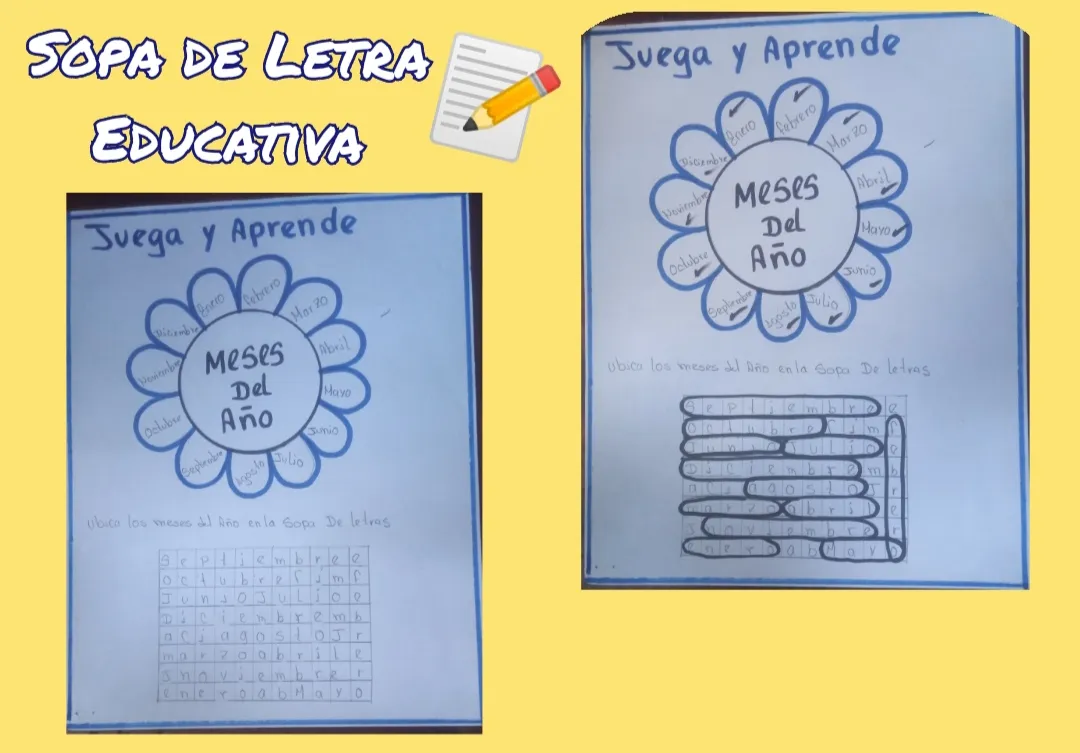 Sopa de Letra
Educativa
Juega y Aprende
Enero
Febrero
Marzo
Abril
Mayo
Junio
Julio
Agosto
Septiembre
Octubre
Noviembre
Diciembre
Meses
Del
Año
Ubica los meses del Año en la Sopa De letras
S e p t i e m b r e e
o c t u b r e f i m f
J u n i o J u l i o e
D i c i e m b r e m b
a c i a g o s t o J r
m a r z o a b r i l e
J n o v i e m b r e r
e n e r o a b M a y o
Juega y Aprende
Enero
Febrero
Marzo
Abril
Mayo
Junio
Julio
Agosto
Septiembre
Octubre
Noviembre
Diciembre
Meses
Del
Año
Ubica los meses del Año en la Sopa De letras
S e p t i e m b r e e
o c t u b r e f i m f
J u n i o J u l i o e
D i c i e m b r e m b
a c i a g o s t o J r
m a r z o a b r i l e
J n o v i e m b r e r
e n e r o a b M a y o